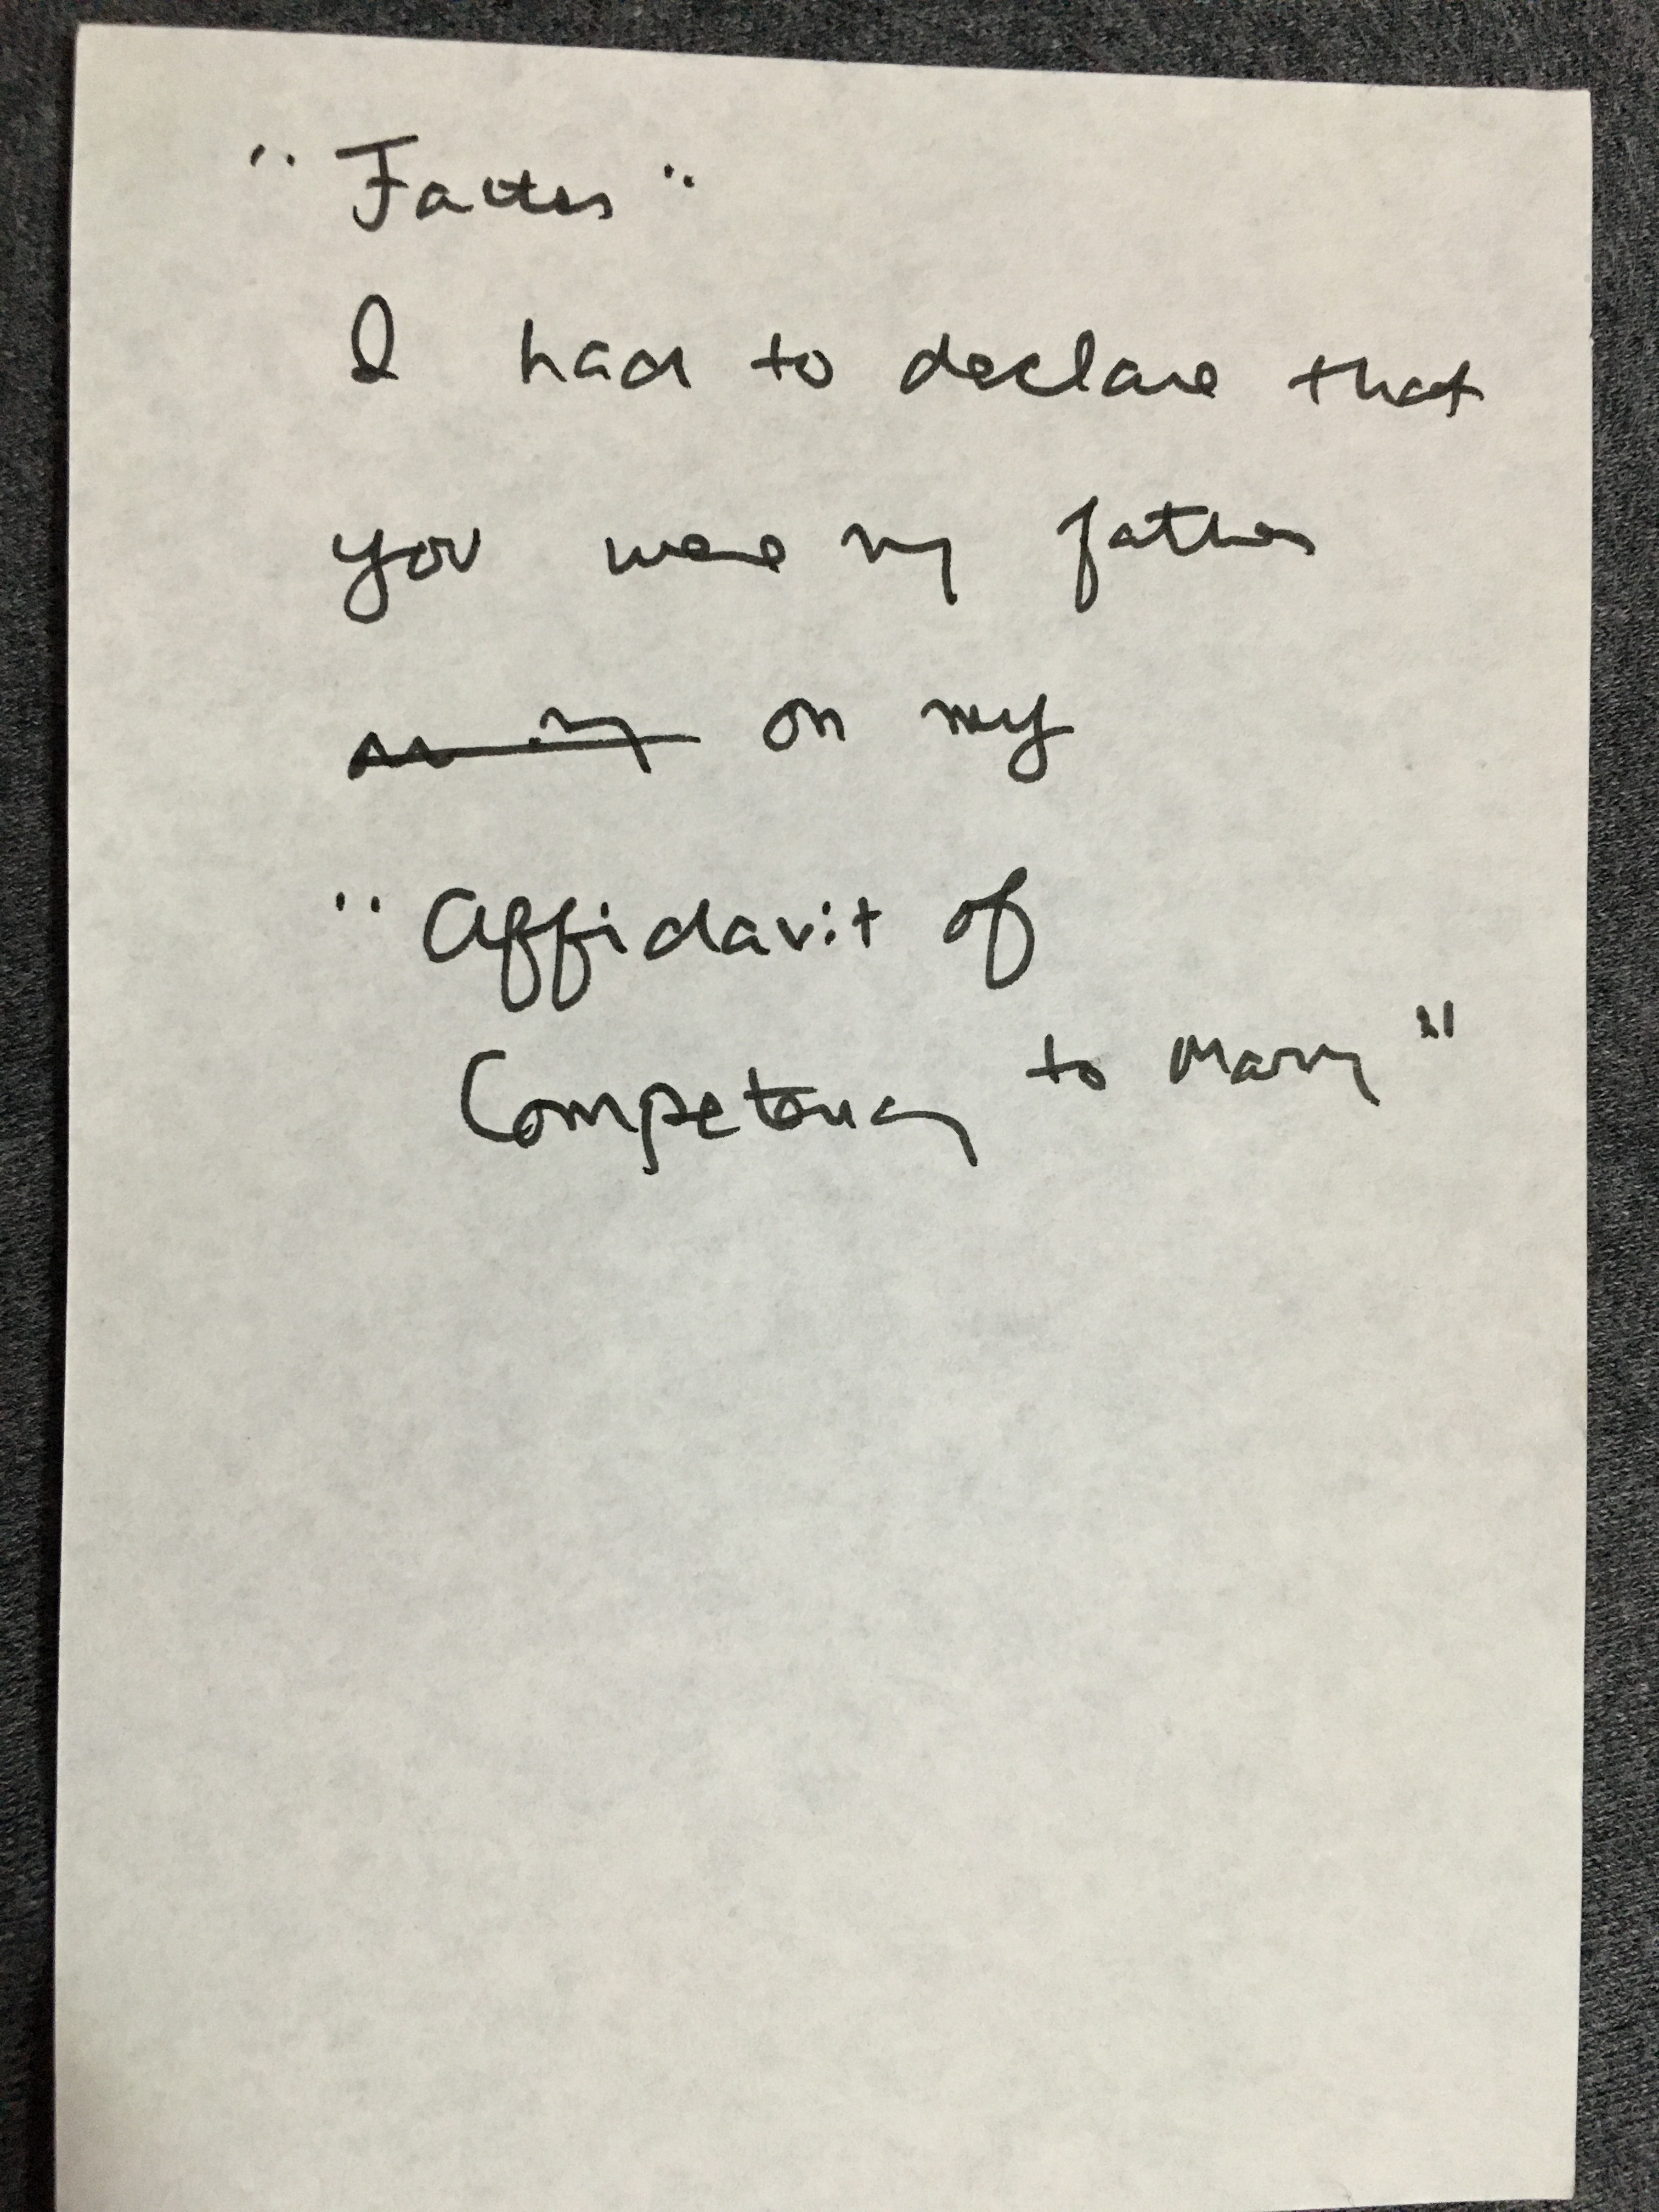 "Factes"
I had to declare that
you were my father
on my
"Affidavit of
Competency to Marry"